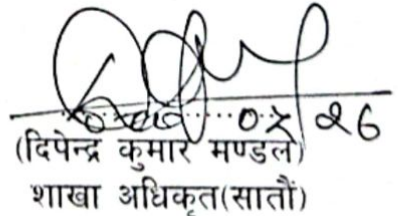 ०५ २६
(दिपेन्द्र कुमार मण्डल)
शाखा अधिकृत(सातौं)